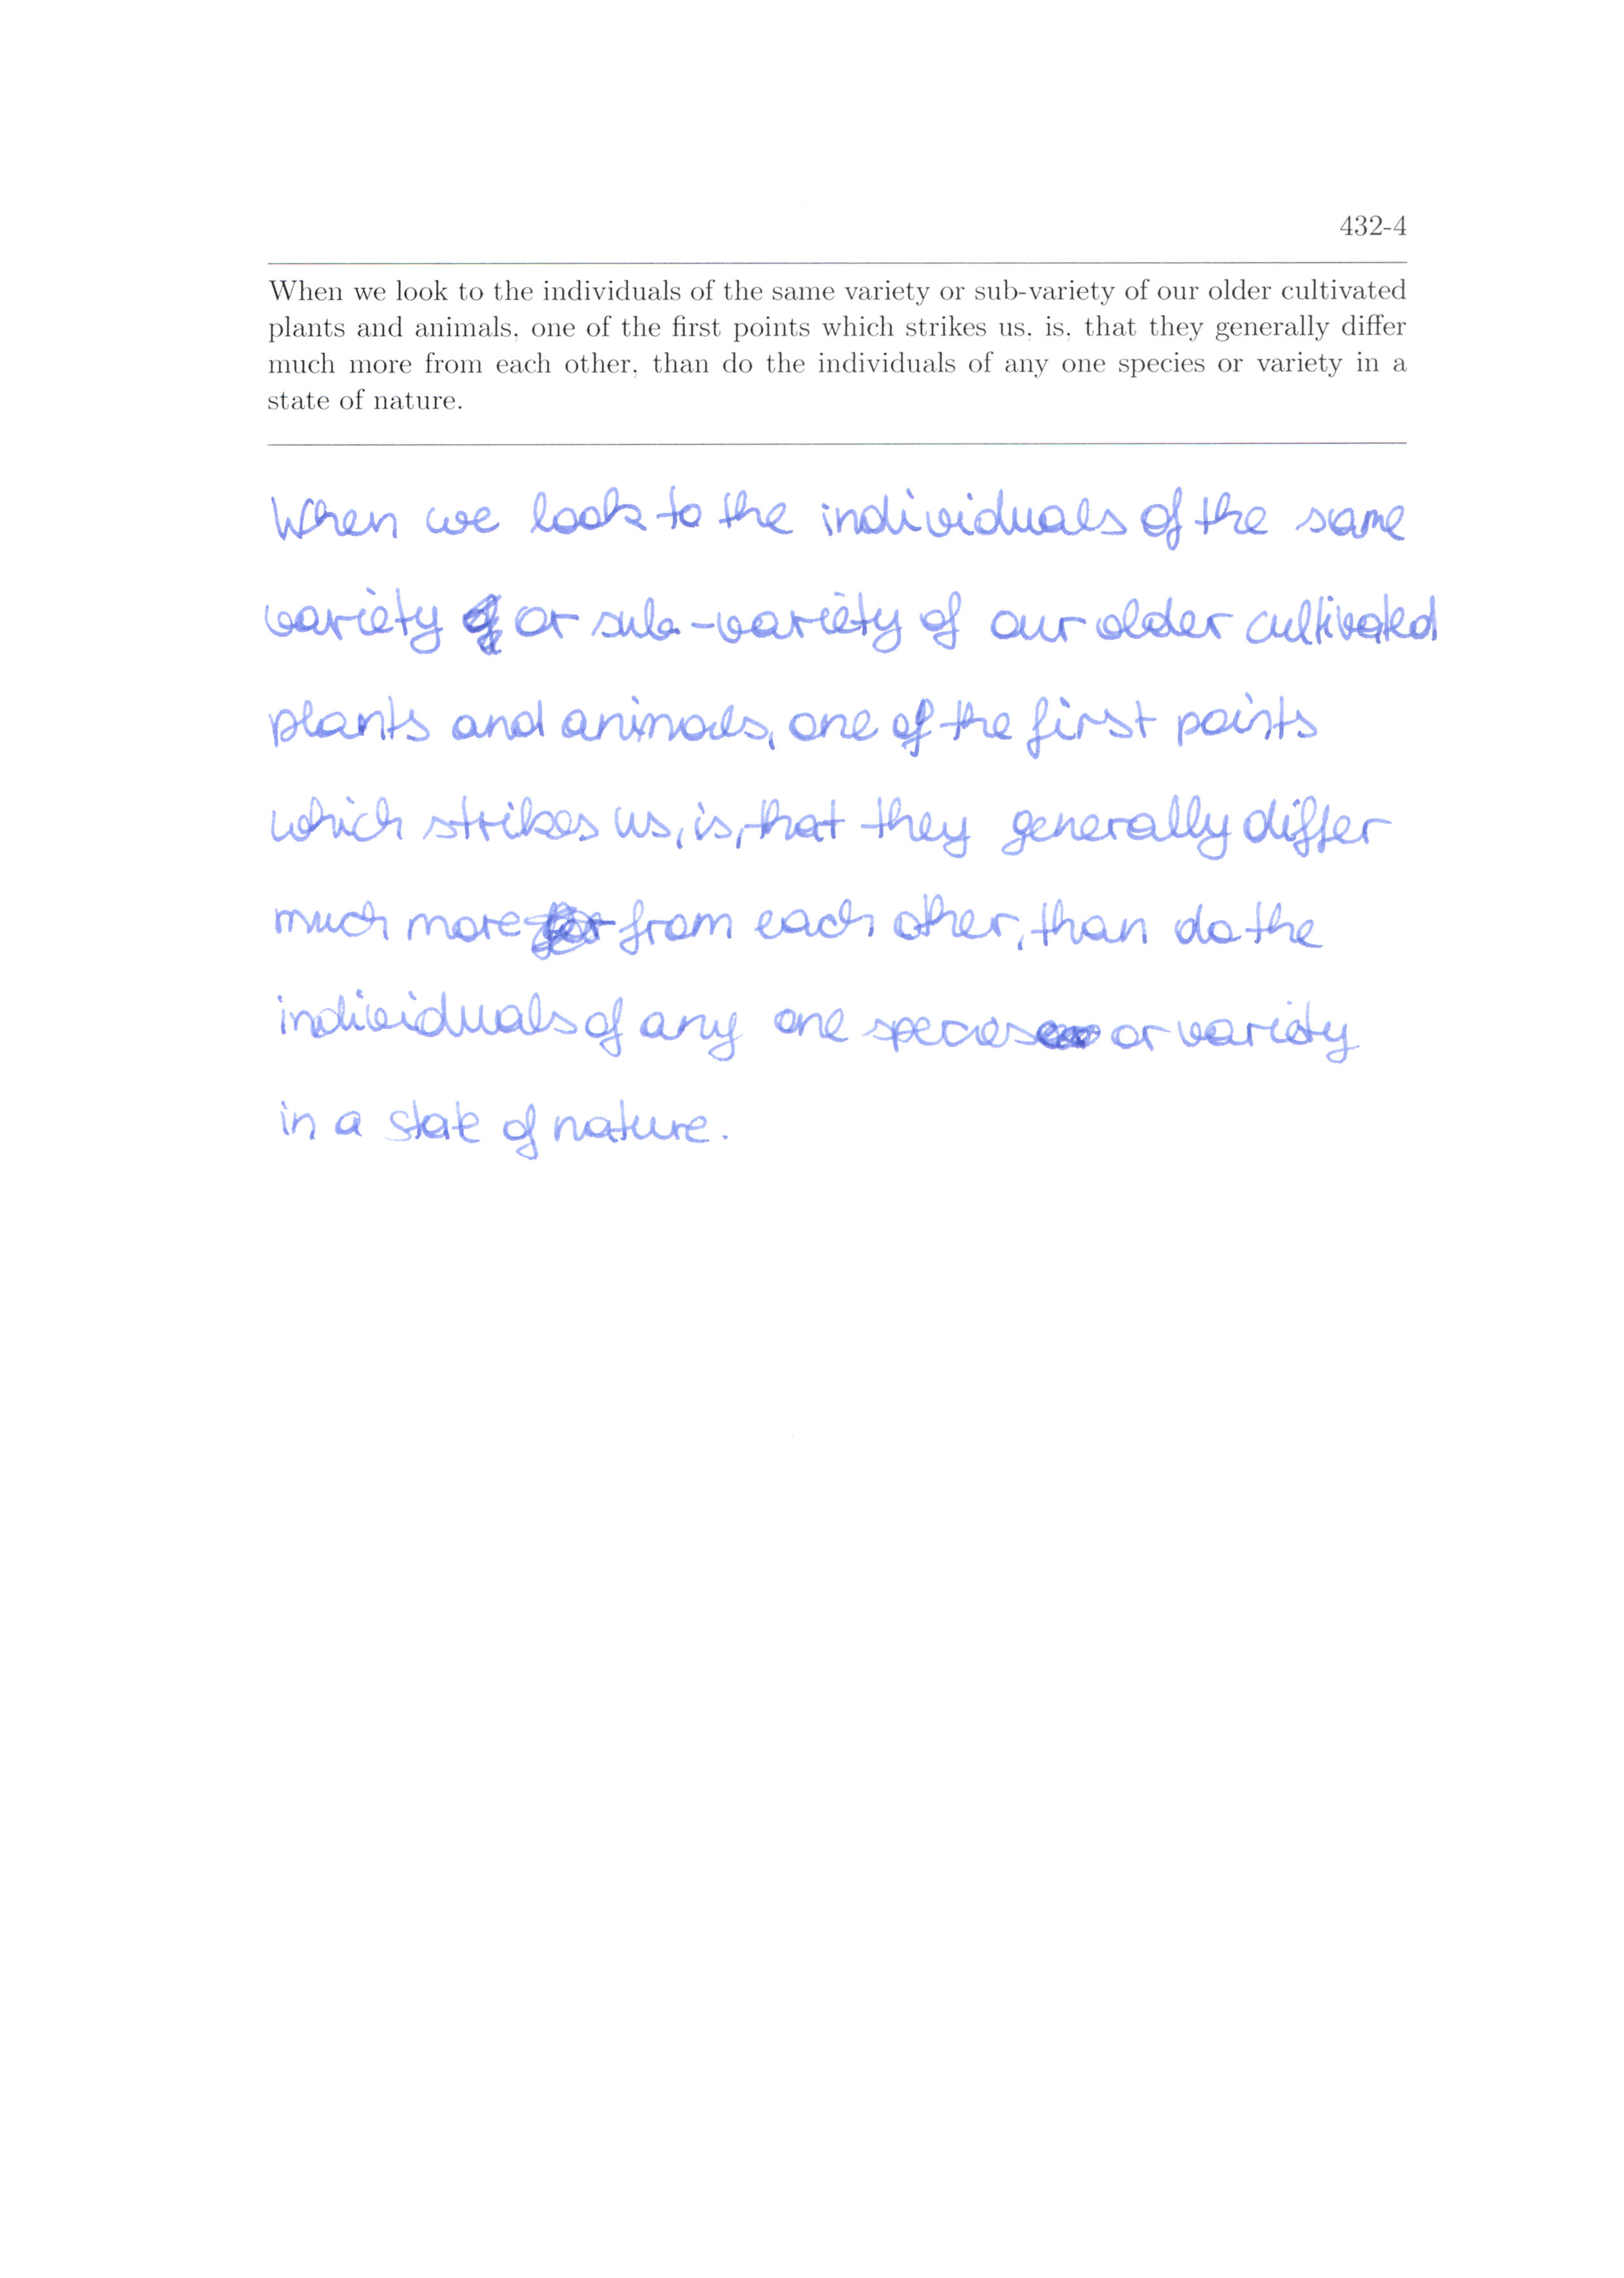 432-4
When we look to the individuals of the same variety or sub-variety of our older cultivated
plants and animals, one of the first points which strikes us, is, that they generally differ
much more from each other, than do the individuals of any one species or variety in a
state of nature.
When we look to the individuals of the same
variety or sub-variety of our older cultivated
plants and animals, one of the first points
which strikes us, is, that they generally differ
much more from each other, than do the
individuals of any one species or variety
in a state of nature.